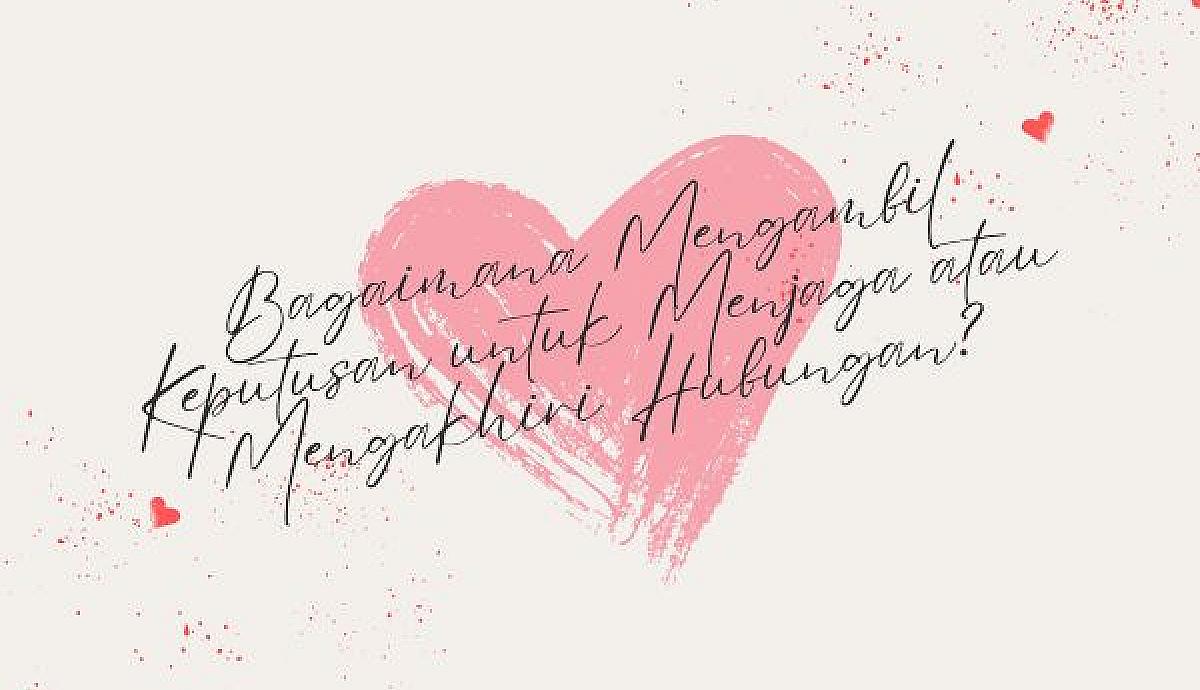 Bagaimana Mengambil
Keputusan untuk Menjaga atau
Mengakhiri Hubungan?